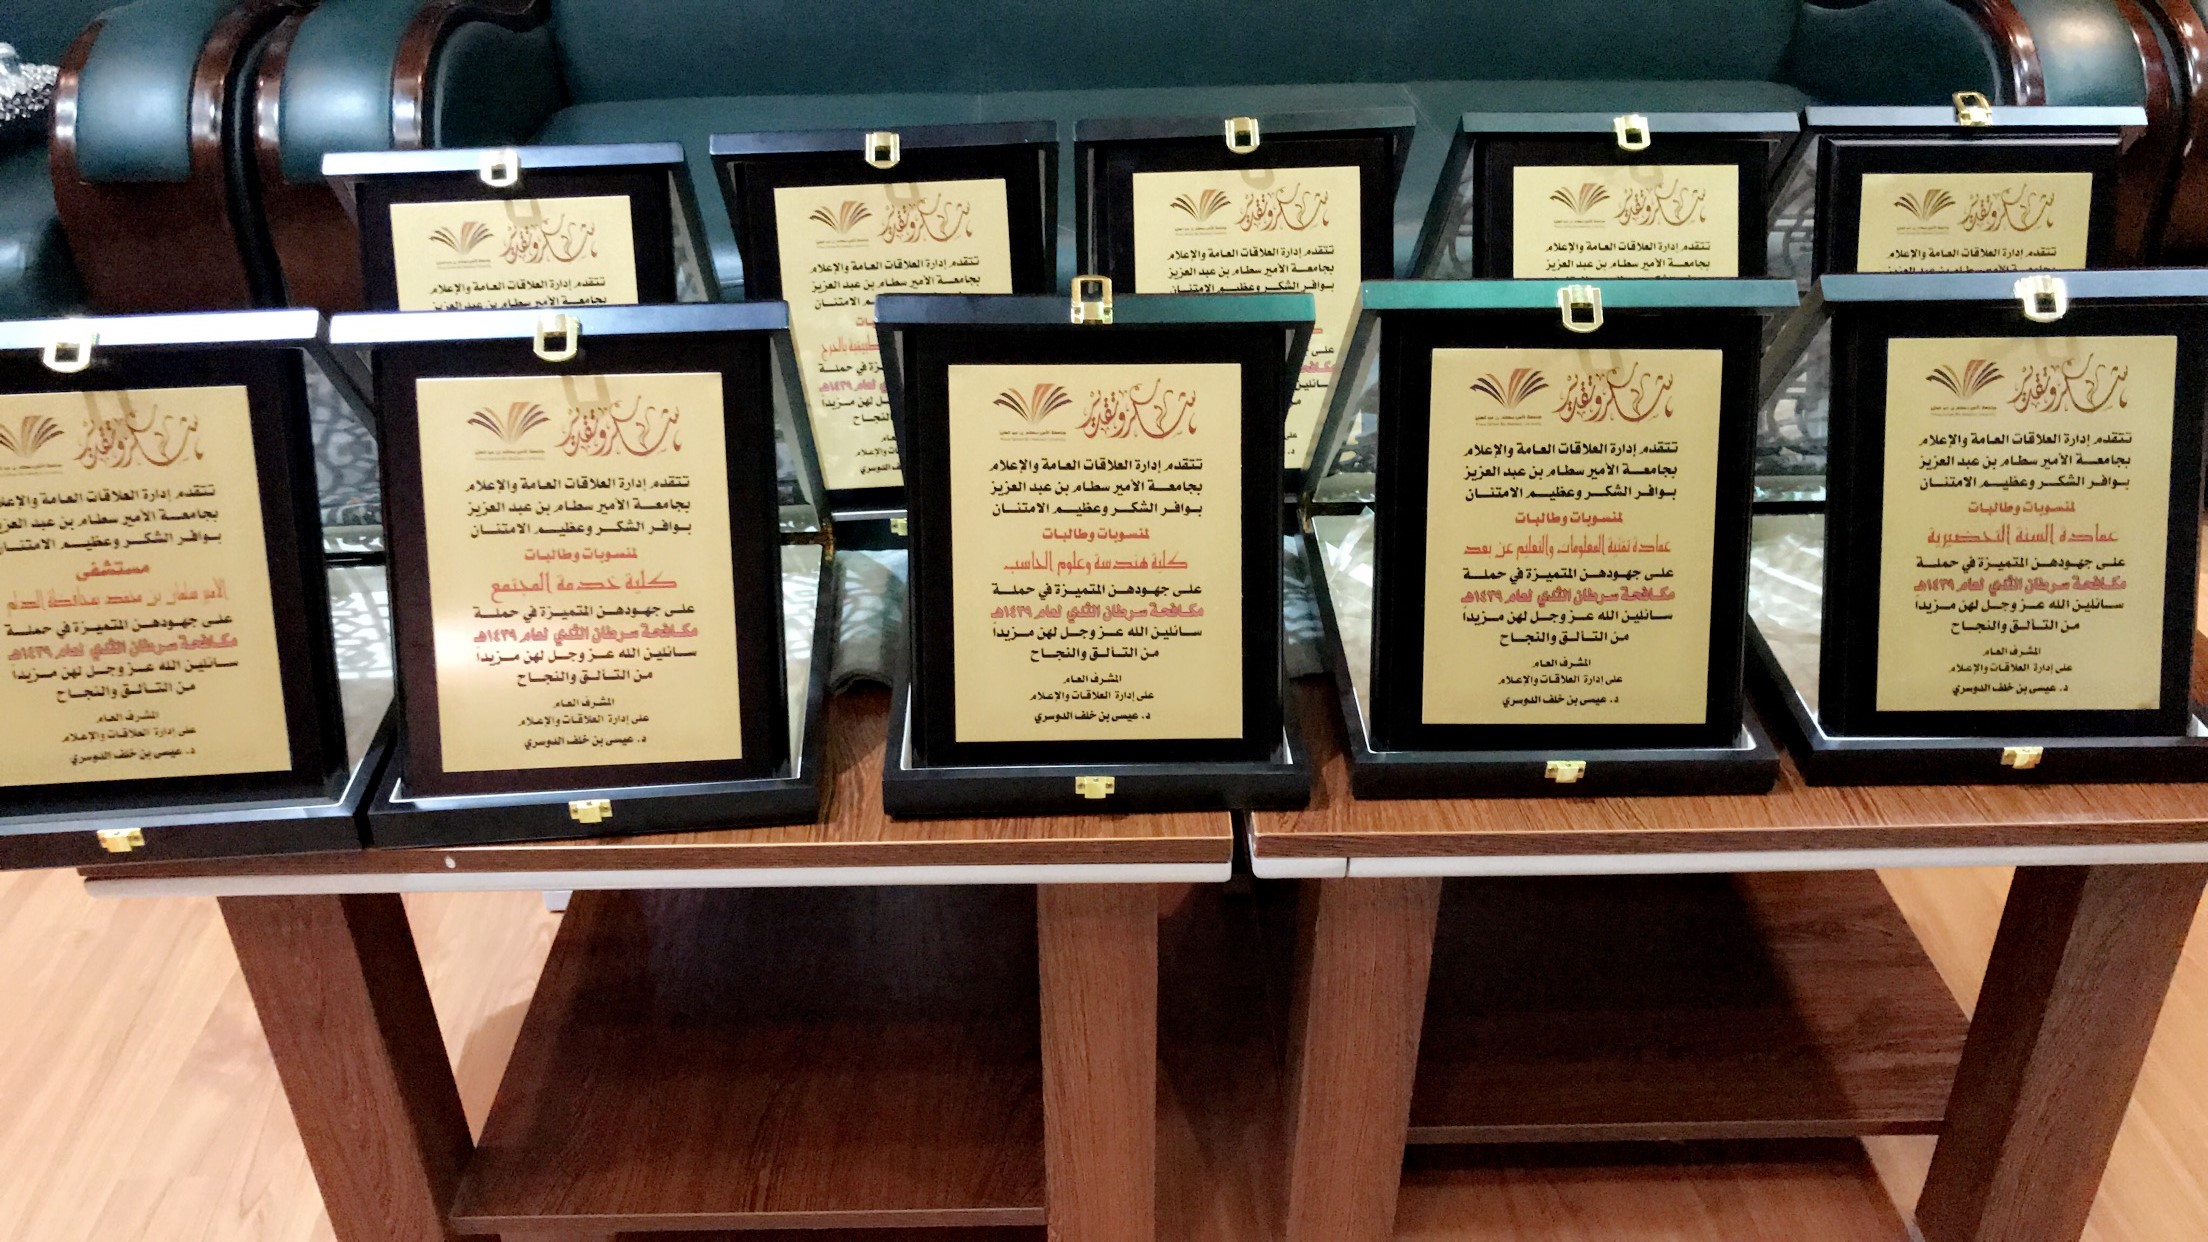 شكر وتقدير
تتقدم إدارة العلاقات العامة والإعلام
بجامعة الأمير سطام بن عبد العزيز
شكر وتقدير
تتقدم إدارة العلاقات العامة والإعلام
بجامعة الأمير سطام بن عبد العزيز
بوافر الشكر وعظيم الامتنان
ـزة في حملـة
لعام ١٤٣٩هـ
جل لهن مزيداً
والنجاح
شكر وتقدير
تتقدم إدارة العلاقات العامة والإعلام
بجامعة الأمير سطام بن عبد العزيز
بوافر الشكر وعظيم الامتنان
شكر وتقدير
تتقدم إدارة العلاقات العامة والإعلام
بجامعة الأمير سطام بن عبد العزيز
شكر وتقدير
تتقدم إدارة العلاقات العامة والإعلام
شكر وتقدير
تتقدم إدارة العلاقات العامة والإعلا
بجامعة الأمير سطام بن عبد العزيز
بوافر الشكر وعظيم الامتنان
لمنسوبات وطالبات
مستشفى
الأمير سلمان بن محمد بمحافظة الدلم
على جهودهن المتميزة في حملة
مكافحة سرطان الثدي لعام ١٤٣٩هـ
سائلين الله عز وجل لهن مزيداً
من التألق والنجاح
المشرف العام
على إدارة العلاقات والإعلام
د. عيسى بن خلف الدوسري
شكر وتقدير
تتقدم إدارة العلاقات العامة والإعلام
بجامعة الأمير سطام بن عبد العزيز
بوافر الشكر وعظيم الامتنان
لمنسوبات وطالبات
كلية خدمة المجتمع
على جهودهن المتميزة في حملة
مكافحة سرطان الثدي لعام ١٤٣٩هـ
سائلين الله عز وجل لهن مزيداً
من التألق والنجاح
المشرف العام
على إدارة العلاقات والإعلام
د. عيسى بن خلف الدوسري
شكر وتقدير
تتقدم إدارة العلاقات العامة والإعلام
بجامعة الأمير سطام بن عبد العزيز
بوافر الشكر وعظيم الامتنان
لمنسوبات وطالبات
كلية هندسة وعلوم الحاسب
على جهودهن المتميزة في حملة
مكافحة سرطان الثدي لعام ١٤٣٩هـ
سائلين الله عز وجل لهن مزيداً
من التألق والنجاح
المشرف العام
على إدارة العلاقات والإعلام
د. عيسى بن خلف الدوسري
شكر وتقدير
تتقدم إدارة العلاقات العامة والإعلام
بجامعة الأمير سطام بن عبد العزيز
بوافر الشكر وعظيم الامتنان
لمنسوبات وطالبات
عمادة تقنية المعلومات والتعليم عن بعد
على جهودهن المتميزة في حملة
مكافحة سرطان الثدي لعام ١٤٣٩هـ
سائلين الله عز وجل لهن مزيداً
من التألق والنجاح
المشرف العام
على إدارة العلاقات والإعلام
د. عيسى بن خلف الدوسري
شكر وتقدير
تتقدم إدارة العلاقات العامة والإعلام
بجامعة الأمير سطام بن عبد العزيز
بوافر الشكر وعظيم الامتنان
لمنسوبات وطالبات
عمادة السنة التحضيرية
على جهودهن المتميزة في حملة
مكافحة سرطان الثدي لعام ١٤٣٩هـ
سائلين الله عز وجل لهن مزيداً
من التألق والنجاح
المشرف العام
على إدارة العلاقات والإعلام
د. عيسى بن خلف الدوسري